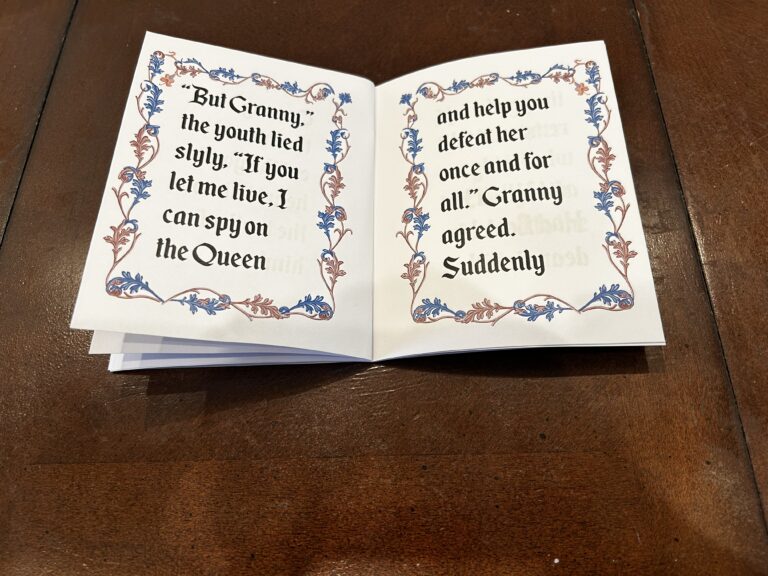 “But Granny,”
the youth lied
slyly, “If you
let me live, I
can spy on
the Queen
and help you
defeat her
once and for
all.” Granny
agreed..
Suddenly